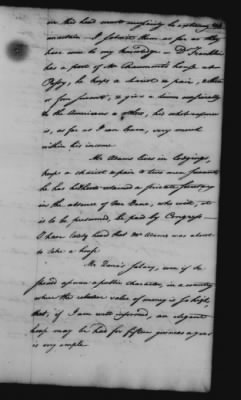 on this head must necessarily be extremely
uncertain. I submit them as far as they
have come to my knowledge — Dr. Franklin
has a part of Mr. Chaumonts house at
Passy, he keeps a chariot & pair, & three
or four servants, & gives a dinner occasionally
to the Americans & others, his whole expence
is, as far as I can learn, very much
within his income.
Mr. Adams lives in lodgings,
keeps a chariot & pair & two men servants
he has hitherto retained a private Secretary
in the absence of Mr. Dana, who will, it
is to be presumed, be paid by Congress —
I have lately heard that Mr. Adams was about
to take a house.
Mr. Dana's Salary, even if he
should upon a public character, in a country
where the relative value of money is so high,
that, if I am well informed, an elegant
house may be had for fifteen guineas a year
is very ample.